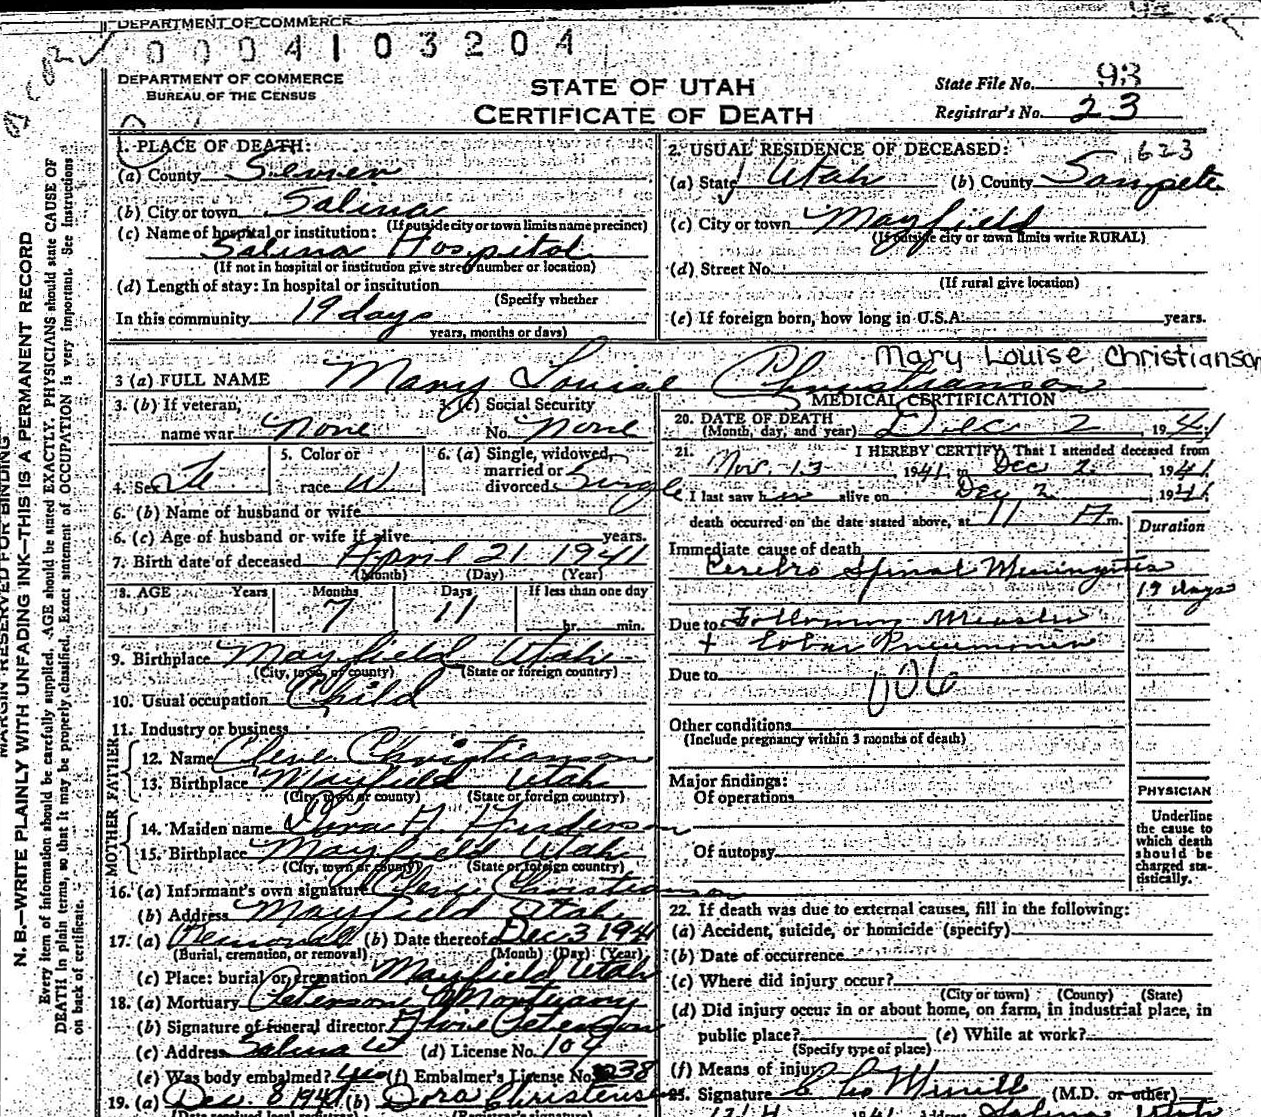 DEPARTMENT OF COMMERCE
0004103204
DEPARTMENT OF COMMERCE
BUREAU OF THE CENSUS
STATE OF UTAH
CERTIFICATE OF DEATH
State File No. 93
Registrar's No. 23
MARGIN RESERVED FOR BINDING
N. B.—WRITE PLAINLY WITH UNFADING INK—THIS IS A PERMANENT RECORD
Every item of information should be carefully supplied. AGE should be stated EXACTLY. PHYSICIANS should state CAUSE OF
DEATH in plain terms, so that it may be properly classified. Exact statement of OCCUPATION is very important. See instructions
on back of certificate.
1. PLACE OF DEATH:
(a) County Sevier
(b) City or town Salina
(If outside city or town limits name precinct)
(c) Name of hospital or institution:
Salina Hospital
(If not in hospital or institution give street number or location)
(d) Length of stay: In hospital or institution
(Specify whether
In this community 19 days
years, months or days)
2. USUAL RESIDENCE OF DECEASED: 623
(a) State Utah (b) County Sanpete
(c) City or town Mayfield
(If outside city or town limits write RURAL)
(d) Street No.
(If rural give location)
(e) If foreign born, how long in U.S.A. years.
Mary Louise Christianson
3 (a) FULL NAME Mary Louise Christianson
3. (b) If veteran,
name war None
3 (c) Social Security
No. None
4. Sex Fe
5. Color or
race W
6. (a) Single, widowed,
married or
divorced Single
6. (b) Name of husband or wife
6. (c) Age of husband or wife if alive years.
7. Birth date of deceased April 21 1941
(Month) (Day) (Year)
8. AGE Years Months Days If less than one day
7 11 hr. min.
9. Birthplace Mayfield Utah
(City, town, or county) (State or foreign country)
10. Usual occupation Child
11. Industry or business
FATHER
12. Name Christianson
13. Birthplace Mayfield Utah
(City, town or county) (State or foreign country)
MOTHER
14. Maiden name
15. Birthplace Mayfield Utah
(City, town or county) (State or foreign country)
16. (a) Informant's own signature Christianson
(b) Address Mayfield Utah
17. (a) Removal (b) Date thereof Dec 3 1941
(Burial, cremation, or removal) (Month) (Day) (Year)
(c) Place: burial or cremation Mayfield Utah
18. (a) Mortuary Peterson Mortuary
(b) Signature of funeral director Peterson
(c) Address Salina Ut (d) License No. 104
(e) Was body embalmed? yes (f) Embalmer's License No. 238
19. (a) Dec 8 1941 (b) Dora Christensen
(Date received local registrar) (Registrar's signature)
MEDICAL CERTIFICATION
20. DATE OF DEATH
(Month, day, and year) Dec 2 1941
21. I HEREBY CERTIFY, That I attended deceased from
Nov. 13 1941 to Dec 2 1941
I last saw h alive on Dec 2 1941
death occurred on the date stated above, at 11 A m.
Duration
Immediate cause of death
Cerebro Spinal Meningitis
19 days
Due to Following Measles
+ Lobar Pneumonia
Due to
006
Other conditions
(Include pregnancy within 3 months of death)
Major findings:
Of operations
Of autopsy
PHYSICIAN
Underline
the cause to
which death
should be
charged sta-
tistically.
22. If death was due to external causes, fill in the following:
(a) Accident, suicide, or homicide (specify)
(b) Date of occurrence
(c) Where did injury occur?
(City or town) (County) (State)
(d) Did injury occur in or about home, on farm, in industrial place, in
public place? (e) While at work?
(Specify type of place)
(f) Means of injury
Signature Merrill (M.D. or other)
1941 Address Salina Utah